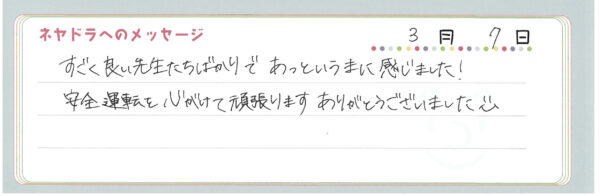 ネヤドラへのメッセージ 3月7日
すごく良い先生たちばかりで あっというまに感じました!
安全運転を心がけて頑張ります ありがとうございました